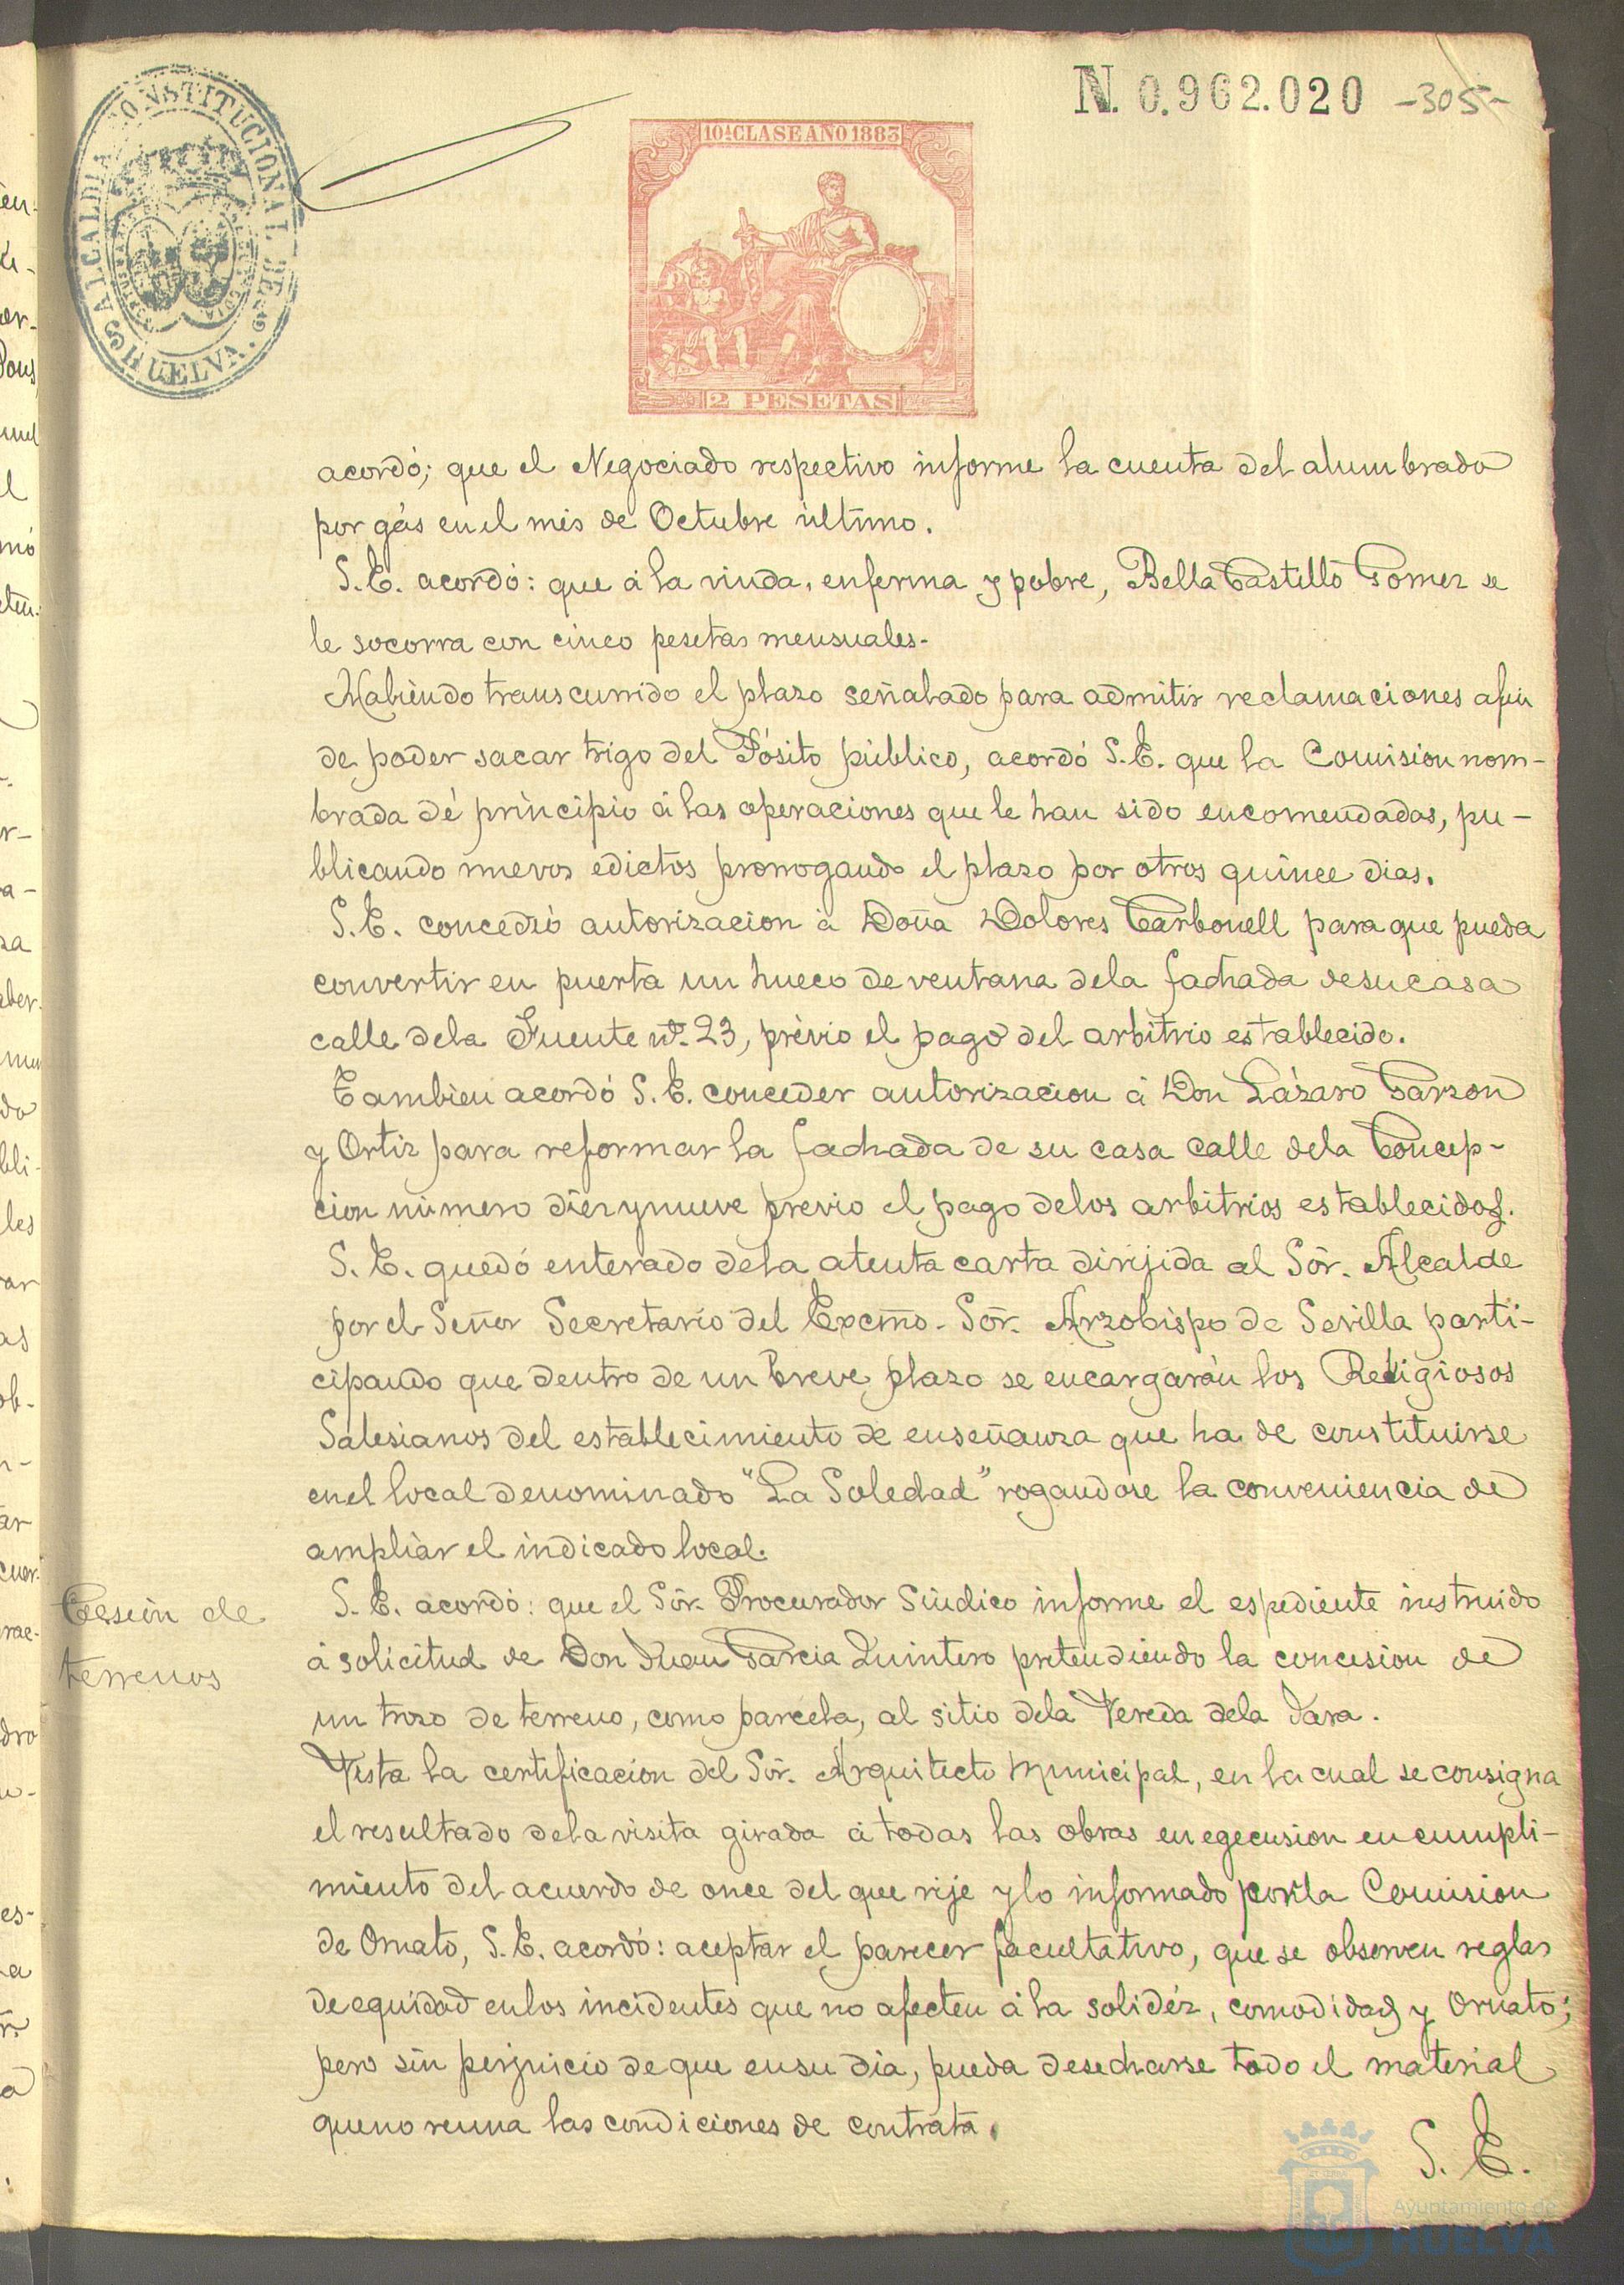 N. 0.962.020 -305-
ALCALDIA CONSTITUCIONAL DE HUELVA.
10ª CLASE AÑO 1883
2 PESETAS
acordó; que el Negociado respectivo informe la cuenta del alumbrado
por gás en el mes de Octubre último.
S.E. acordó: que á la viuda, enferma y pobre, Bella Castillo Gomez se
le socorra con cinco pesetas mensuales.
Habiendo transcurrido el plazo señalado para admitir reclamaciones afin
de poder sacar trigo del Pósito público, acordó S.E. que la Comision nom-
brada dé principio á las operaciones que le han sido encomendadas, pu-
blicando nuevos edictos prorrogando el plazo por otros quince dias.
S.E. concedió autorizacion á Doña Dolores Carbonell para que pueda
convertir en puerta un hueco de ventana dela fachada desucasa
calle dela Fuente nº. 23, prévio el pago del arbitrio establecido.
Tambien acordó S.E. conceder autorizacion á Don Lázaro Garzon
y Ortiz para reformar la fachada de su casa calle dela Concep-
cion número diez y nueve previo el pago delos arbitrios establecidos.
S.E. quedó enterado dela atenta carta dirijida al Sõr. Alcalde
por el Señor Secretario del Excmo. Sõr. Arzobispo de Sevilla parti-
cipando que dentro de un breve plazo se encargarán los Religiosos
Salesianos del establecimiento de enseñanza que ha de constituirse
en el local denominado "La Soledad" rogandose la conveniencia de
ampliar el indicado local.
Cesión de
terrenos
S.E. acordó: que el Sõr. Procurador Síndico informe el espediente instruido
á solicitud de Don Juan Garcia Quintero pretendiendo la concesion de
un trozo de terreno, como parcela, al sitio dela Vereda dela Jara.
Vista la certificacion del Sõr. Arquitecto Municipal, en la cual se consigna
el resultado dela visita girada á todas las obras en egecusion en cumpli-
miento del acuerdo de once del que rije y lo informado por la Comision
de Ornato, S.E. acordó: aceptar el parecer facultativo, que se observen reglas
de equidad en los incidentes que no afecten á la solidéz, comodidad y Ornato;
pero sin perjuicio de que ensu dia, pueda desecharse todo el material
queno reuna las condiciones de contrata.
S. E.
Ayuntamiento de
HUELVA